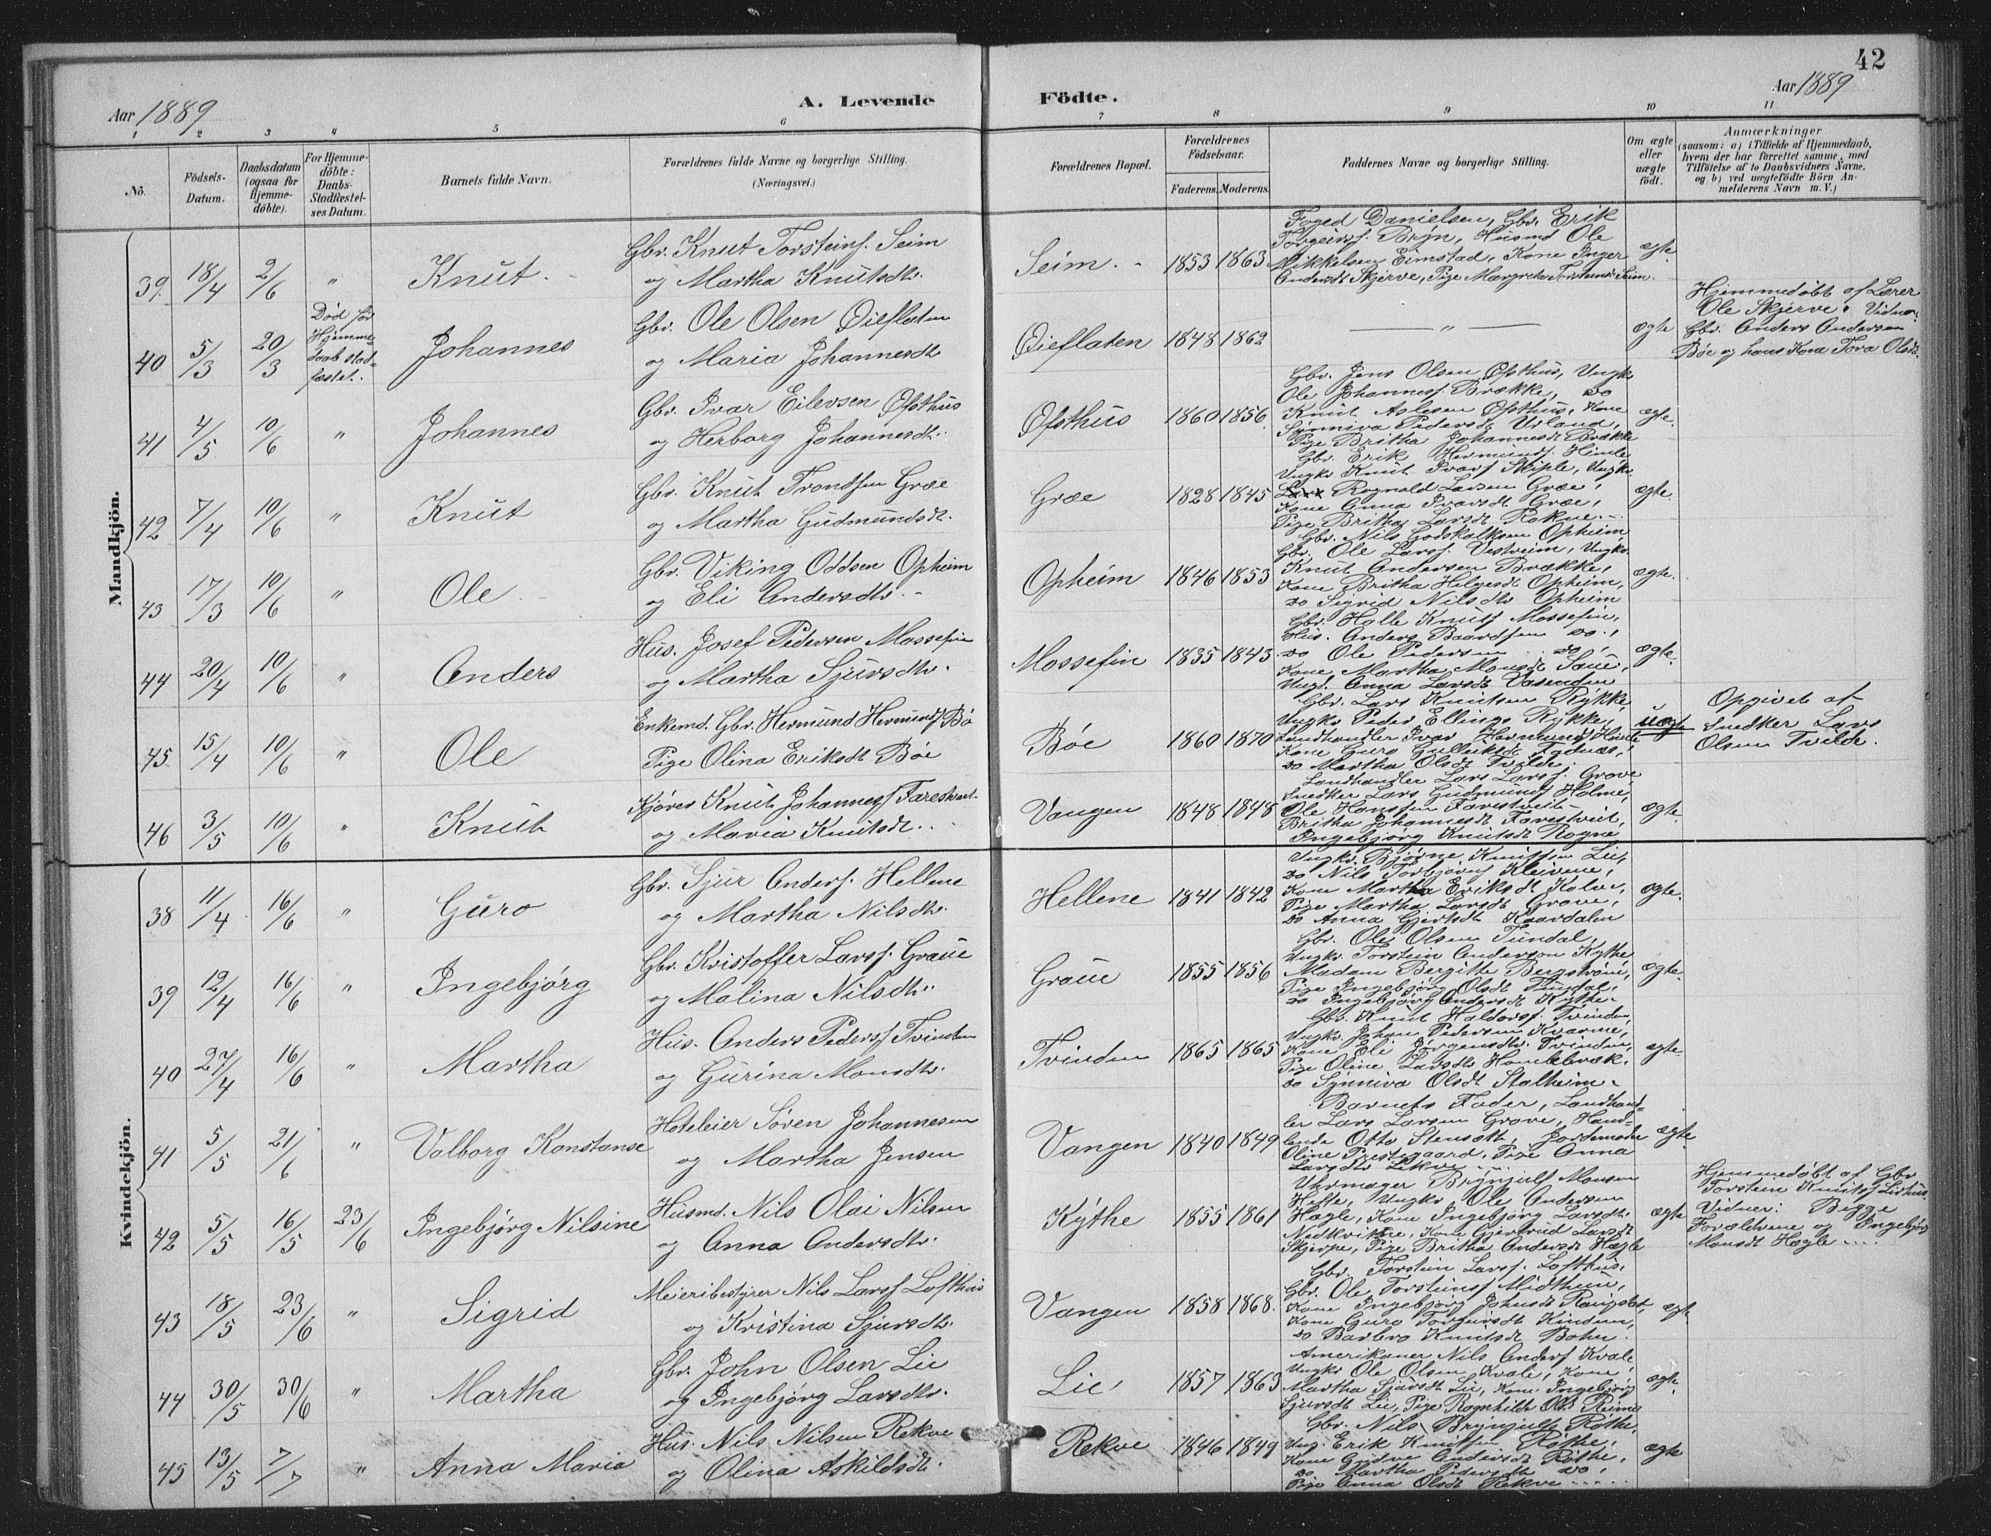 42
Aar 1889
A. Levende Födte.
Aar 1889
1 2 3 " 5 6 7 8 9 10 11
No.
Födsels-Datum.
Daabsdatum (ogsaa for Hjemmedöbte).
For Hjemmedöbte: Daabs-Stadfæstelses Datum.
Barnets fulde Navn.
Forældrenes fulde Navne og borgerlige Stilling.
(Næringsvei.)
Forældrenes Bopæl.
Forældrenes Födselsaar.
Faderens. Moderens.
Faddernes Navne og borgerlige Stilling.
Om ægte eller uægte födt.
Anmærkninger
(saasom: a) i Tilfælde af Hjemmedaab, hvem der har forrettet samme, med Tilföielse af to Daabsvidners Navne, og b) ved uægtefödte Börn Anmelderens Navn m. V.)
Mandkjön.
39 18/4 2/6 " Knut. Gbr. Knut Torsteins. Seim
og Martha Knutsdtr. Seim. 1853 1863 ægte.
Foged Danielsen, Gbr. Erik
Torgeirs. Bryn, Husmd Ole
Mikkelsen Eimstad, Kone Inger
Andersdt Skjerve, Pige Margretha Torsteinsdt Seim.
40 5/3 20/3 Død før
Hjemme-
daab stad-
fæstet. Johannes Gbr. Ole Olsen Øieflaten
og Maria Johannesdt. Øieflaten 1848 1862 — " — ægte
Hjemmedøbt af Lærer
Ole Skjerve. Vidne:
Gbr. Anders Andersen
Bøe og hans Kone Tora Olsdt.
41 4/5 10/6 " Johannes Gbr. Ivar Eilevsen Øfsthus
og Herborg Johannesdt. Øfsthus 1860 1856 ægte.
Gbr. Jens Olsen Øfsthus, Ungk.
Ole Johanness. Brække, do
Knut Aslesen Øfsthus, Kone
Synniva Pedersdt Urland,
Pige Britha Johannesdt Brække
42 7/4 10/6 " Knut Gbr. Knut Trondsen Græe
og Martha Gudmundsdt. Græe 1828 1845 ægte.
Gbr. Erik Hermunds. Himle,
Ungk. Knut Ivars. Skiple, Ungk.
Rognald Larsen Græe,
Kone Anna Ivarsdt Græe,
Pige Britha Larsdt Rokne.
43 17/3 10/6 " Ole Gbr. Viking Oddsen Opheim
og Eli Andersdtr. Opheim 1846 1853 ægte.
Gbr. Nils Godskalksen Opheim
Gbr. Ole Larss. Vestreim, Ungk.
Knut Andersen Brække,
Kone Britha Helgesdt Opheim,
do Sigrid Nilsdtr Opheim
44 20/4 10/6 " Anders Hus. Josef Pedersen Mossefin
og Martha Sjursdtr. Mossefin 1835 1843 ægte.
Gbr. Halle Knuts. Mossefin,
Hus. Anders Baardsen do.,
do Ole Pedersen do,
Kone Martha Monsdt Saue,
Ungd. Anna Larsdt Vasenden
45 15/4 10/6 " Ole Enkemd. Gbr. Hermund Hermunds. Bø
Pige Olina Eriksdt Bøe Bøe 1860 1870 uægte
Gbr. Lars Knutsen Rykke,
Ungk. Peder Ellings. Rykke,
Landhandler Ivar Hermunds. Himle
Kone Guro Gulleiksdt Tydnæs,
do Martha Olsdt Tvilde.
Opgivet af
Snedker Lars
Olsen Tvilde.
46 3/5 10/6 " Knut Kjører Knut Johanness. Farestveit
og Maria Knutsdt. Vangen 1848 1848 ægte.
Landhandler Lars Larss. Grove
Snedker Lars Gudmunds. Holme,
Ole Hanssen Farestveit
Britha Johannesdt Farestveit,
Ingebjørg Knutsdt Rogne
Kvindekjön.
38 11/4 16/6 " Guro Gbr. Sjur Anders. Hellene
og Martha Nilsdtr. Hellene 1841 1842 ægte.
Ungk. Bjørne Knutsen Lie,
do Nils Torbjørns. Kleivene,
Kone Martha Eriksdt Kolve,
Pige Martha Larsdt Grove,
do Anna Gjertsdt Kaardalen
39 12/4 16/6 " Ingebjørg Gbr. Kristoffer Larss. Graue
og Malina Nilsdtr. Graue 1855 1856 ægte.
Gbr. Ole Olsen Tundal,
Ungk. Torstein Andersen Kythe
Madam Bergitte Bergstrøm,
Pige Ingebjørg Olsdt Tundal,
do Ingebjørg Andersdt Kythe.
40 27/4 16/6 " Martha Hus. Anders Peders. Tvinden
og Gurina Monsdtr. Tvinden 1865 1865 ægte.
Gbr. Knut Haldors. Tvinden,
Ungk. Johan Pedersen Kvarme,
Kone Eli Jørgensdtr. Tvinden,
Pige Oline Larsdt Homlebræk.
do Synniva Olsdt Stalheim.
41 5/5 21/6 " Valborg Konstanse Hoteleier Søren Johannesen
og Martha Jensen Vangen 1840 1849 ægte
Barnets Fader, Landhand-
ler Lars Larsen Grove, Hand-
lende Otto Stensæth, Jordemoder
Oline Prestegaard, Pige Anna
Larsdtr Lekve
42 5/5 16/5 23/6 Ingebjørg Nilsine Husmd. Nils Olai Nilsen
og Anna Andersdtr. Kythe 1855 1861 ægte
Uhrmager Brynjulf Monsen
Hefte, Ungk. Ole Andersen
Hægle, Kone Ingebjørg Larsdt.
Nedkvitne, Kone Gjertrud Larsdt
Skjerpe, Pige Britha Andersdt Hægle
Hjemmedøbt af Gbr.
Torstein Knuts. Listhus
Vidner: Begge
Forældrene og Ingebjørg
Monsdt Hægle
43 18/5 23/6 " Sigrid Meieribestyrer Nils Larss. Lofthus
og Kristina Sjursdtr. Vangen 1858 1868. ægte
Gbr. Torstein Larss. Lofthus,
Gbr. Ole Torsteins. Midthun,
Kone Ingebjørg Johnsdt Rongstad,
Kone Guro Torgeirsdt Kinden,
do Barbro Knutsdt Bohn.
44 30/5 30/6 " Martha Gbr. John Olsen Lie
og Ingebjørg Larsdtr. Lie, 1857 1863 ægte.
Amerikaner Nils Anders. Kvale,
Ungk. Ole Olsen Kvale, Kone
Martha Sjursdt Lie, Kone Ingebjørg
Sjursdt Lie, Pige Rognhild Ols. Reime
45 13/5 7/7 " Anna Maria Hus. Nils Nilsen Rekve
og Olina Askildsdt. Rekve 1846 1849 ægte
Gbr. Nils Brynjuls. Røthe,
Ung. Erik Knutsen Røthe,
Kone Gudve Andersdt Røthe,
do Martha Pedersdt do,
Pige Anna Olsdt Rekve